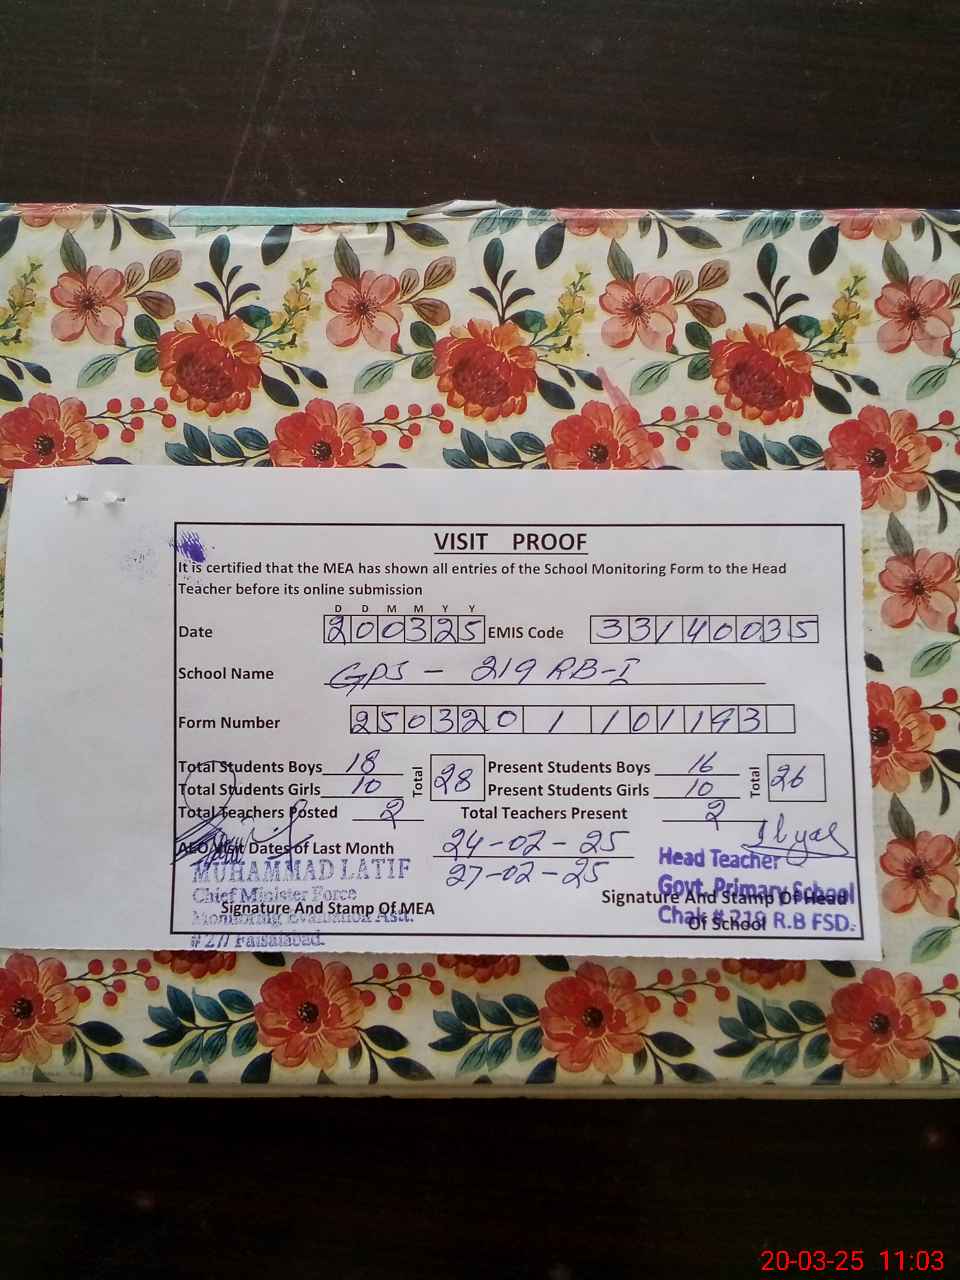 VISIT PROOF
It is certified that the MEA has shown all entries of the School Monitoring Form to the Head
Teacher before its online submission
D D M M Y Y
Date 200325 EMIS Code 33140035
School Name GPS - 219 RB-I
Form Number 250320 1 101193
Total Students Boys 18 Total 28 Present Students Boys 16 Total 26
Total Students Girls 10 Present Students Girls 10
Total Teachers Posted 2 Total Teachers Present 2
AEO Visit Dates of Last Month 24-02-25
27-02-25
Ilyas
MUHAMMAD LATIF
Chief Minister Force
Monitoring Evaluation Asst.
#27/ Faisalabad.
Signature And Stamp Of MEA
Head Teacher
Govt. Primary School
Chak # 219 R.B FSD.
Signature And Stamp Of Head
Of School
20-03-25 11:03